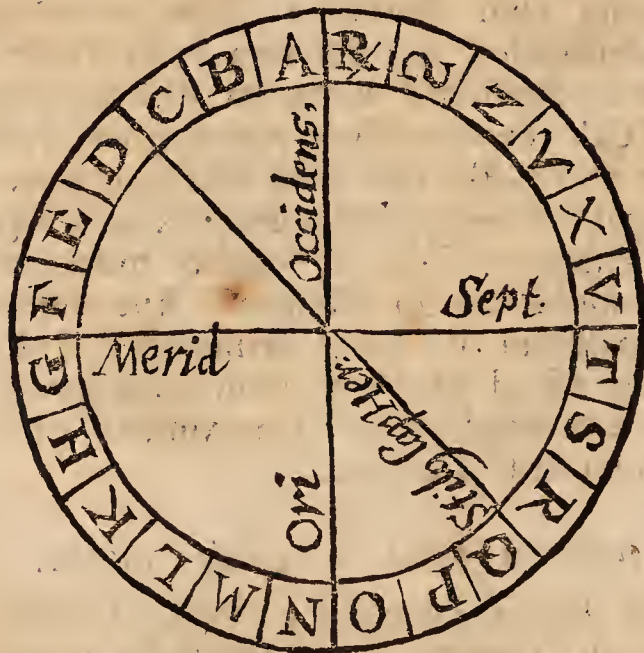 A
B
C
D
E
F
G
H
K
L
M
N
O
P
Q
R
S
T
V
X
Y
Z
℞
Occidens,
Sept.
Merid
Ori
Stilꝰ Cap Her.